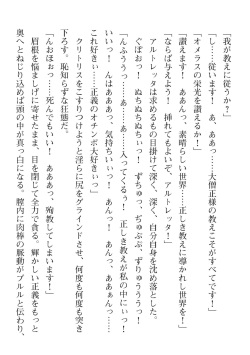 「我が教えに従うか？」
「し……従います！　あ、あっ……大僧正様の教えこそがすべてです！」
「オメラスの栄光を讃えるか、アルトレッタ！」
「讃えます！　ああんっ、素晴らしい世界……正しき教えに導かれし世界を！」
「ならば与えよう！　挿れてもよいぞ、アルトレッタ！」
　アルトレッタは求めるもの目掛けて深く、深く、自分自身を沈め落とした。
　ぐぽおっ！　ぬちぬちぬちぃっ、ちゅぷぷ、ずりゅううぅっ！
「んふううっ……あ、あ……入ってくるぅ！　正しき教えが私の中にぃっ！
いいっ！　んはあああっ、気持ちいいっ！　あんっ、あああんっ……
これ好き……正義のオチンポ大好きぃっ」
　クリトリスをこすりつけようと淫らに尻をグラインドさせ、何度も何度も突き
下ろす。恥知らずな狂態だ。
「んおほぉっ……死んでもいい！　あああっ、殉教してしまいます！」
　眉根を悩ましげに寄せたまま、目を閉じて全力で貪る。輝かしい正義をもっと
奥へとねじり込めば頭の中が真っ白になる。膣内に肉棒の脈動がブルルと伝わり、